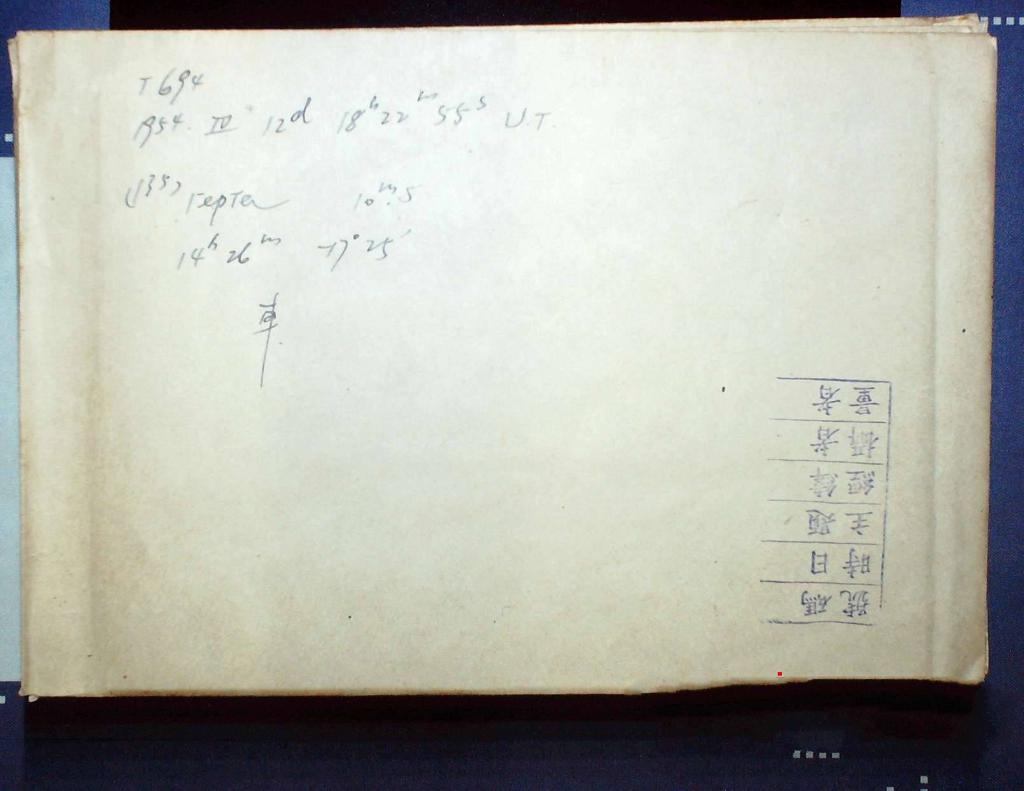 T 694
1954. IV 12d 18h 22m 55s U.T.
(135) Герта 10m.5
14h 26m -17° 25′
車
號碼
時日
主題
經緯
攝者
量者